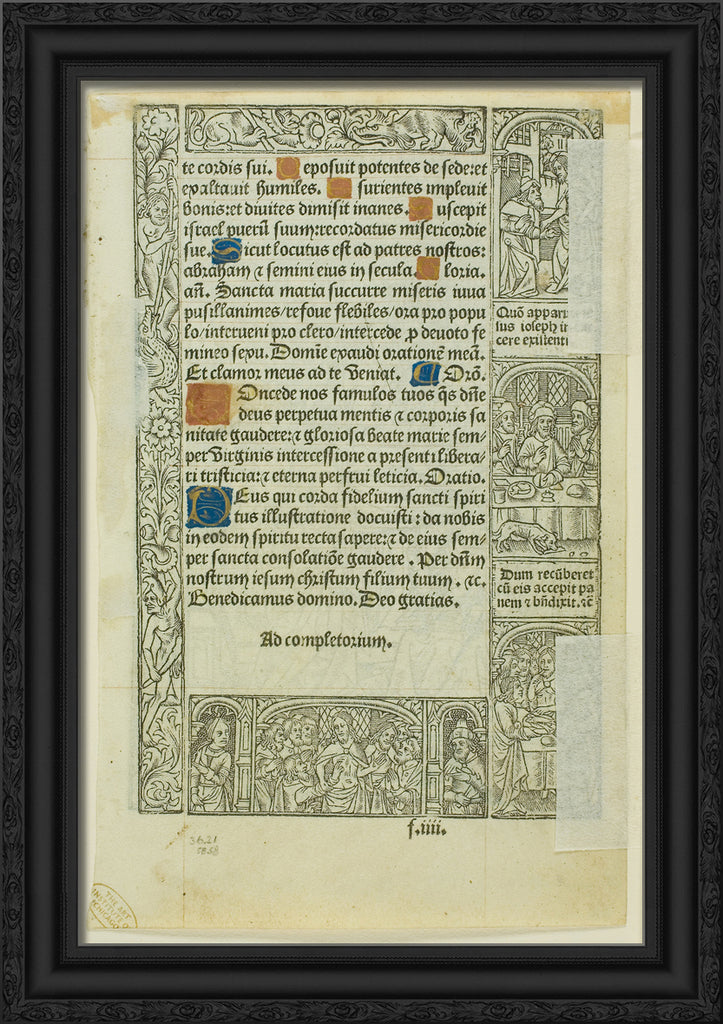 te cordis sui. Deposuit potentes de sede: et
exaltauit humiles. surientes impleuit
bonis: et diuites dimisit inanes. uscepit
israel puerū suum: recordatus misericordie
sue. Sicut locutus est ad patres nostros:
abraham ⁊ semini eius in secula. loria.
añ. Sancta maria succurre miseris iuua
pusillanimes/refoue flebiles/ora pro popu
lo/interueni pro clero/intercede ꝓ deuoto fe
mineo sexu. Domie exaudi orationē meā.
Et clamor meus ad te Veniat. Orō.
Concede nos famulos tuos q̄s dn̄e
deus perpetua mentis ⁊ corporis sa
nitate gaudere: ⁊ gloriosa beate marie sem-
per Virginis intercessione a presenti libera-
ri tristicia: ⁊ eterna perfrui leticia. Oratio.
DEus qui corda fidelium sancti spiri
tus illustratione docuisti: da nobis
in eodem spiritu recta sapere: ⁊ de eius sem-
per sancta consolatiōe gaudere. Per dn̄m
nostrum iesum christum filium tuum. ⁊c.
Benedicamus domino. Deo gratias.
Ad completorium.
f.iiii.
Quō appari
sus ioseph in
cere existenti
Dum recūberet
cū eis accepit pa
nem ⁊ bn̄dixit. ⁊c̄
36.21
58.58
THE ART
INSTITUTE OF
CHICAGO